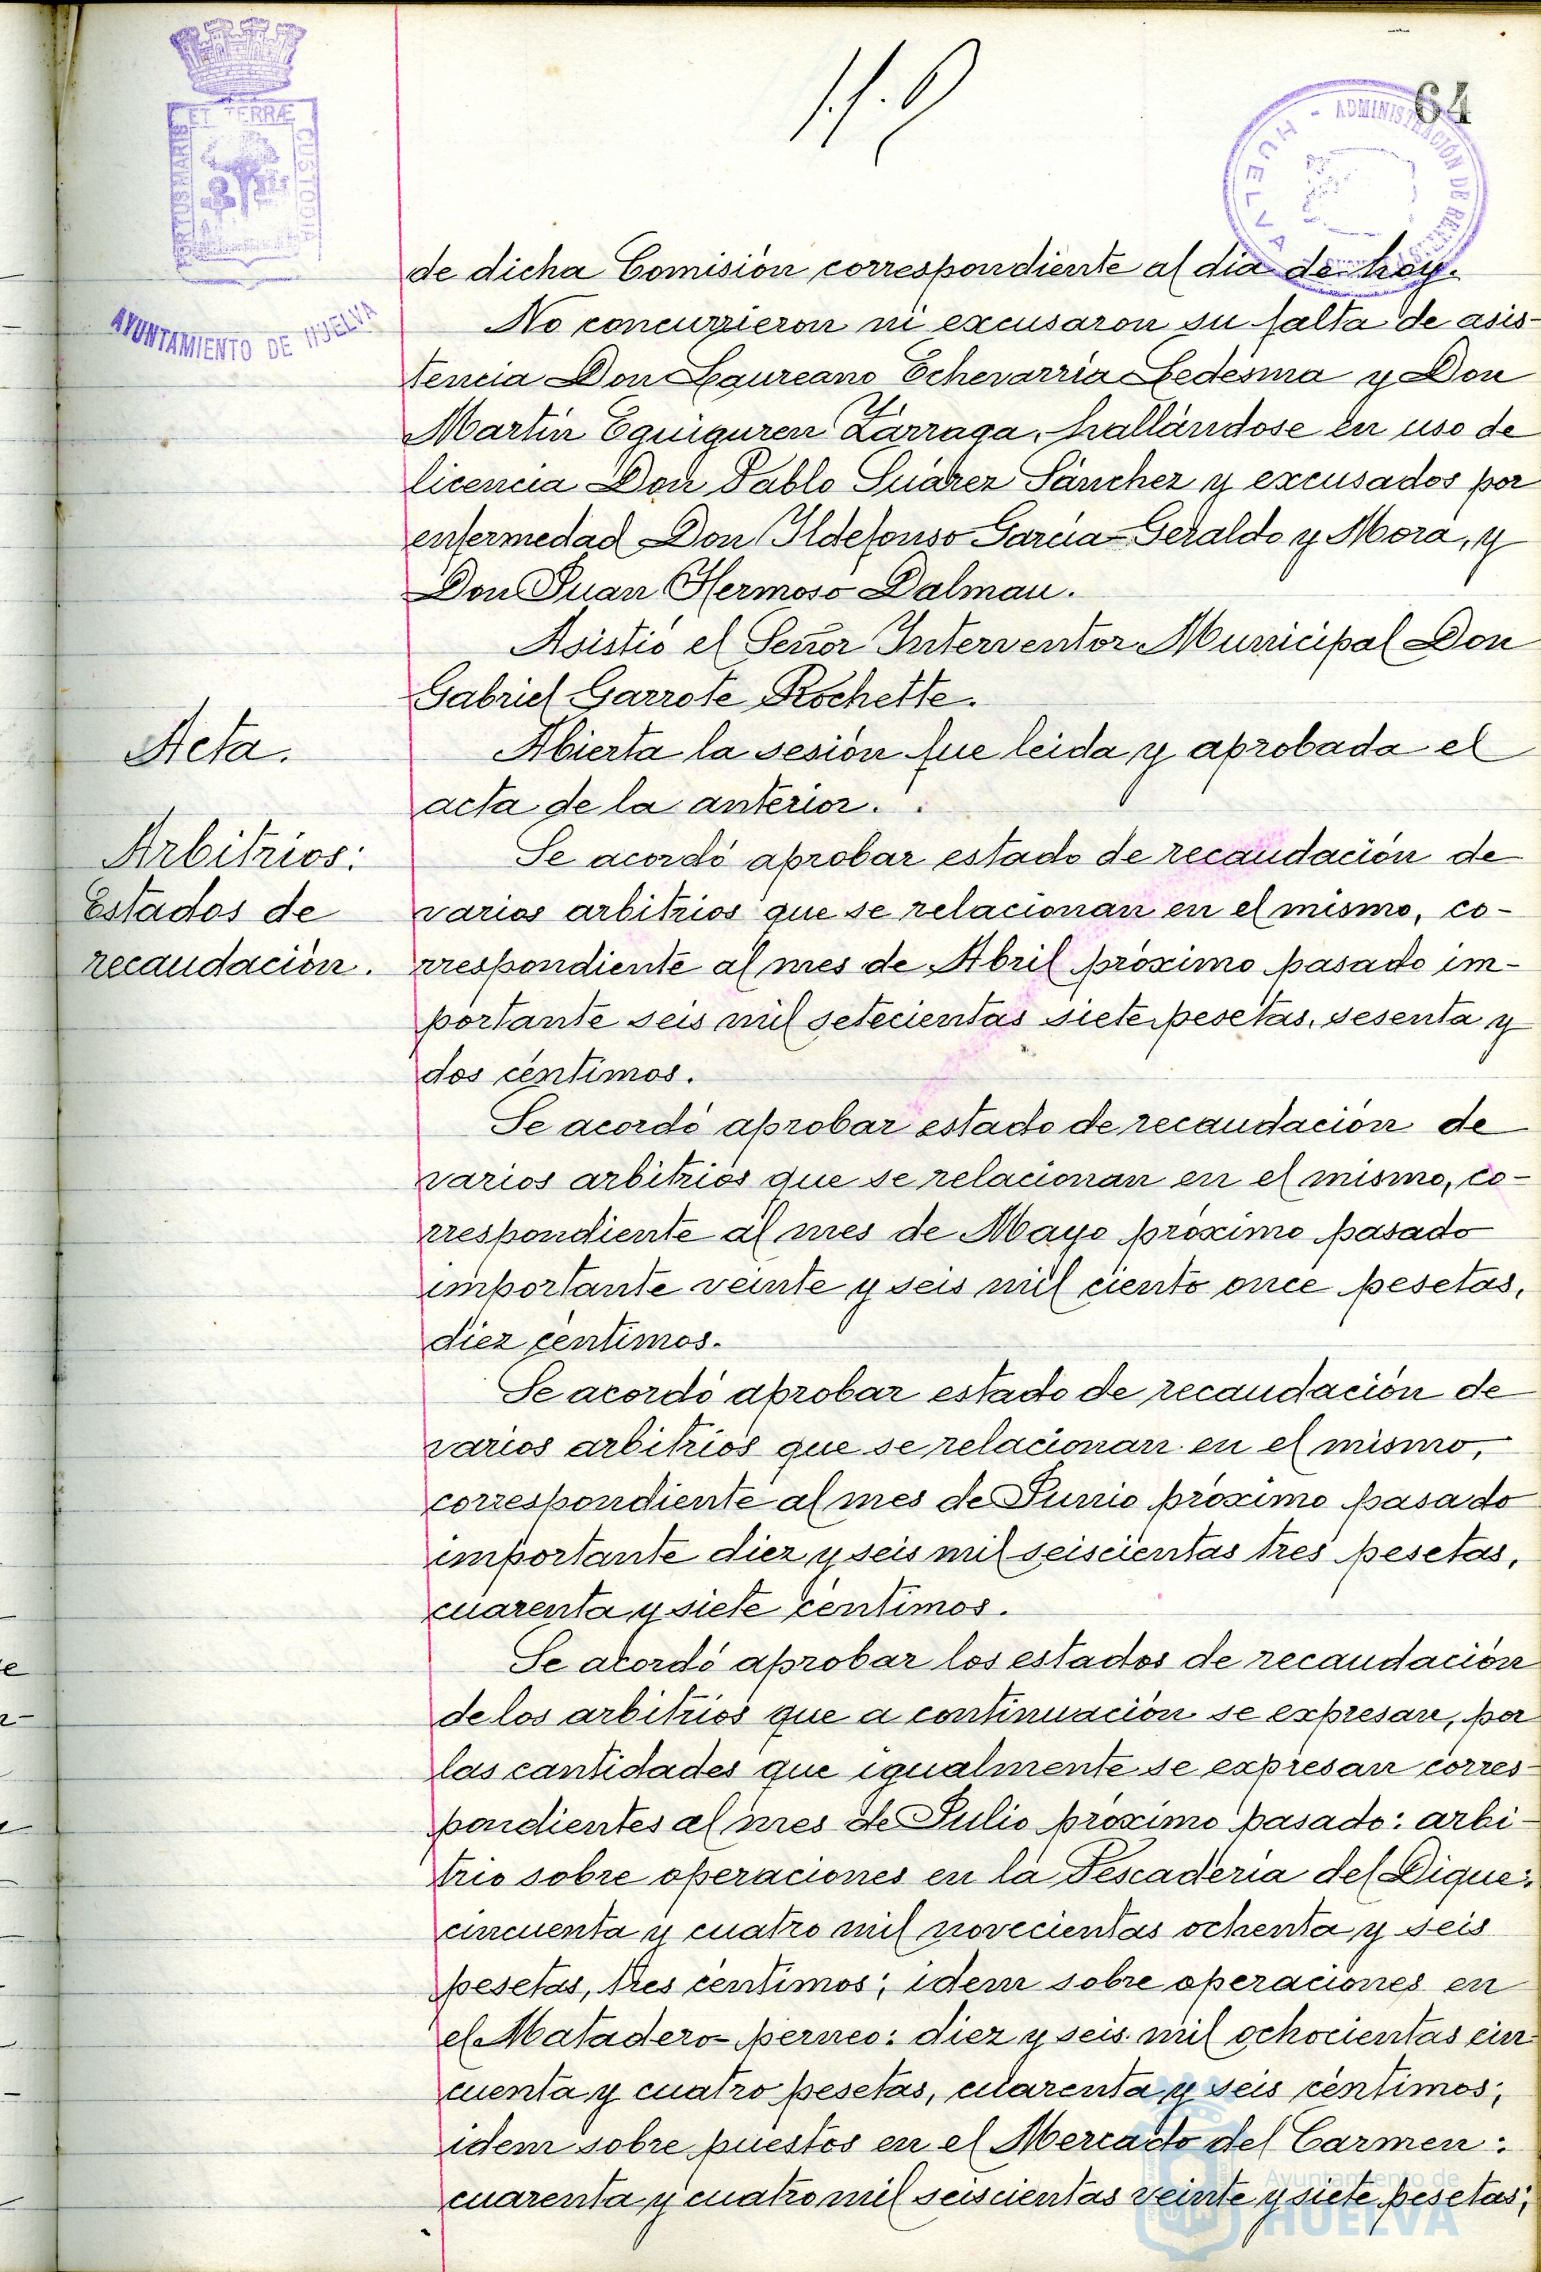 64
PORTUS MARIS ET TERRÆ CUSTODIA
AYUNTAMIENTO DE HUELVA
ADMINISTRACIÓN DE
HUELVA
de dicha Comisión correspondiente al dia de hoy.
No concurrieron ni excusaron su falta de asis-
tencia Don Laureano Echevarria Ledesma y Don
Martin Eguiguren Zárraga, hallándose en uso de
licencia Don Pablo Suárez Sánchez y excusados por
enfermedad Don Ildefonso Garcia-Geraldo y Mora, y
Don Juan Hermoso Dalmau.
Asistió el Señor Interventor Municipal Don
Gabriel Garrote Rochette.
Acta.
Abierta la sesión fue leida y aprobada el
acta de la anterior.
Arbitrios:
Estados de
recaudación.
Se acordó aprobar estado de recaudación de
varios arbitrios que se relacionan en el mismo, co-
rrespondiente al mes de Abril próximo pasado im-
portante seis mil setecientas siete pesetas, sesenta y
dos céntimos.
Se acordó aprobar estado de recaudación de
varios arbitrios que se relacionan en el mismo, co-
rrespondiente al mes de Mayo próximo pasado
importante veinte y seis mil ciento once pesetas,
diez céntimos.
Se acordó aprobar estado de recaudación de
varios arbitrios que se relacionan en el mismo,
correspondiente al mes de Junio próximo pasado
importante diez y seis mil seiscientas tres pesetas,
cuarenta y siete céntimos.
Se acordó aprobar los estados de recaudación
de los arbitrios que a continuación se expresan, por
las cantidades que igualmente se expresan corres-
pondientes al mes de Julio próximo pasado: arbi-
trio sobre operaciones en la Pescaderia del Dique:
cincuenta y cuatro mil novecientas ochenta y seis
pesetas, tres céntimos; idem sobre operaciones en
el Matadero-perneo: diez y seis mil ochocientas cin
cuenta y cuatro pesetas, cuarenta y seis céntimos;
idem sobre puestos en el Mercado del Carmen:
cuarenta y cuatro mil seiscientas veinte y siete pesetas;
Ayuntamiento de
HUELVA